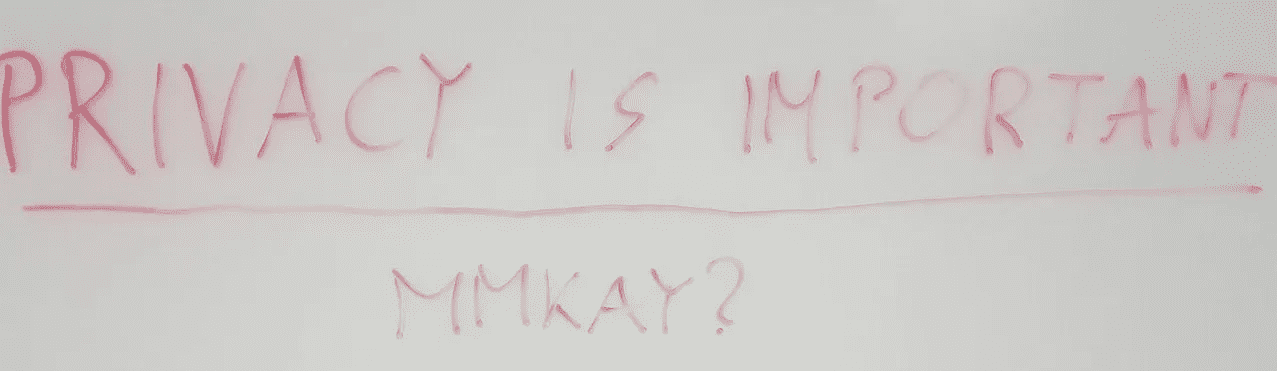 PRIVACY IS IMPORTANT
MMKAY?